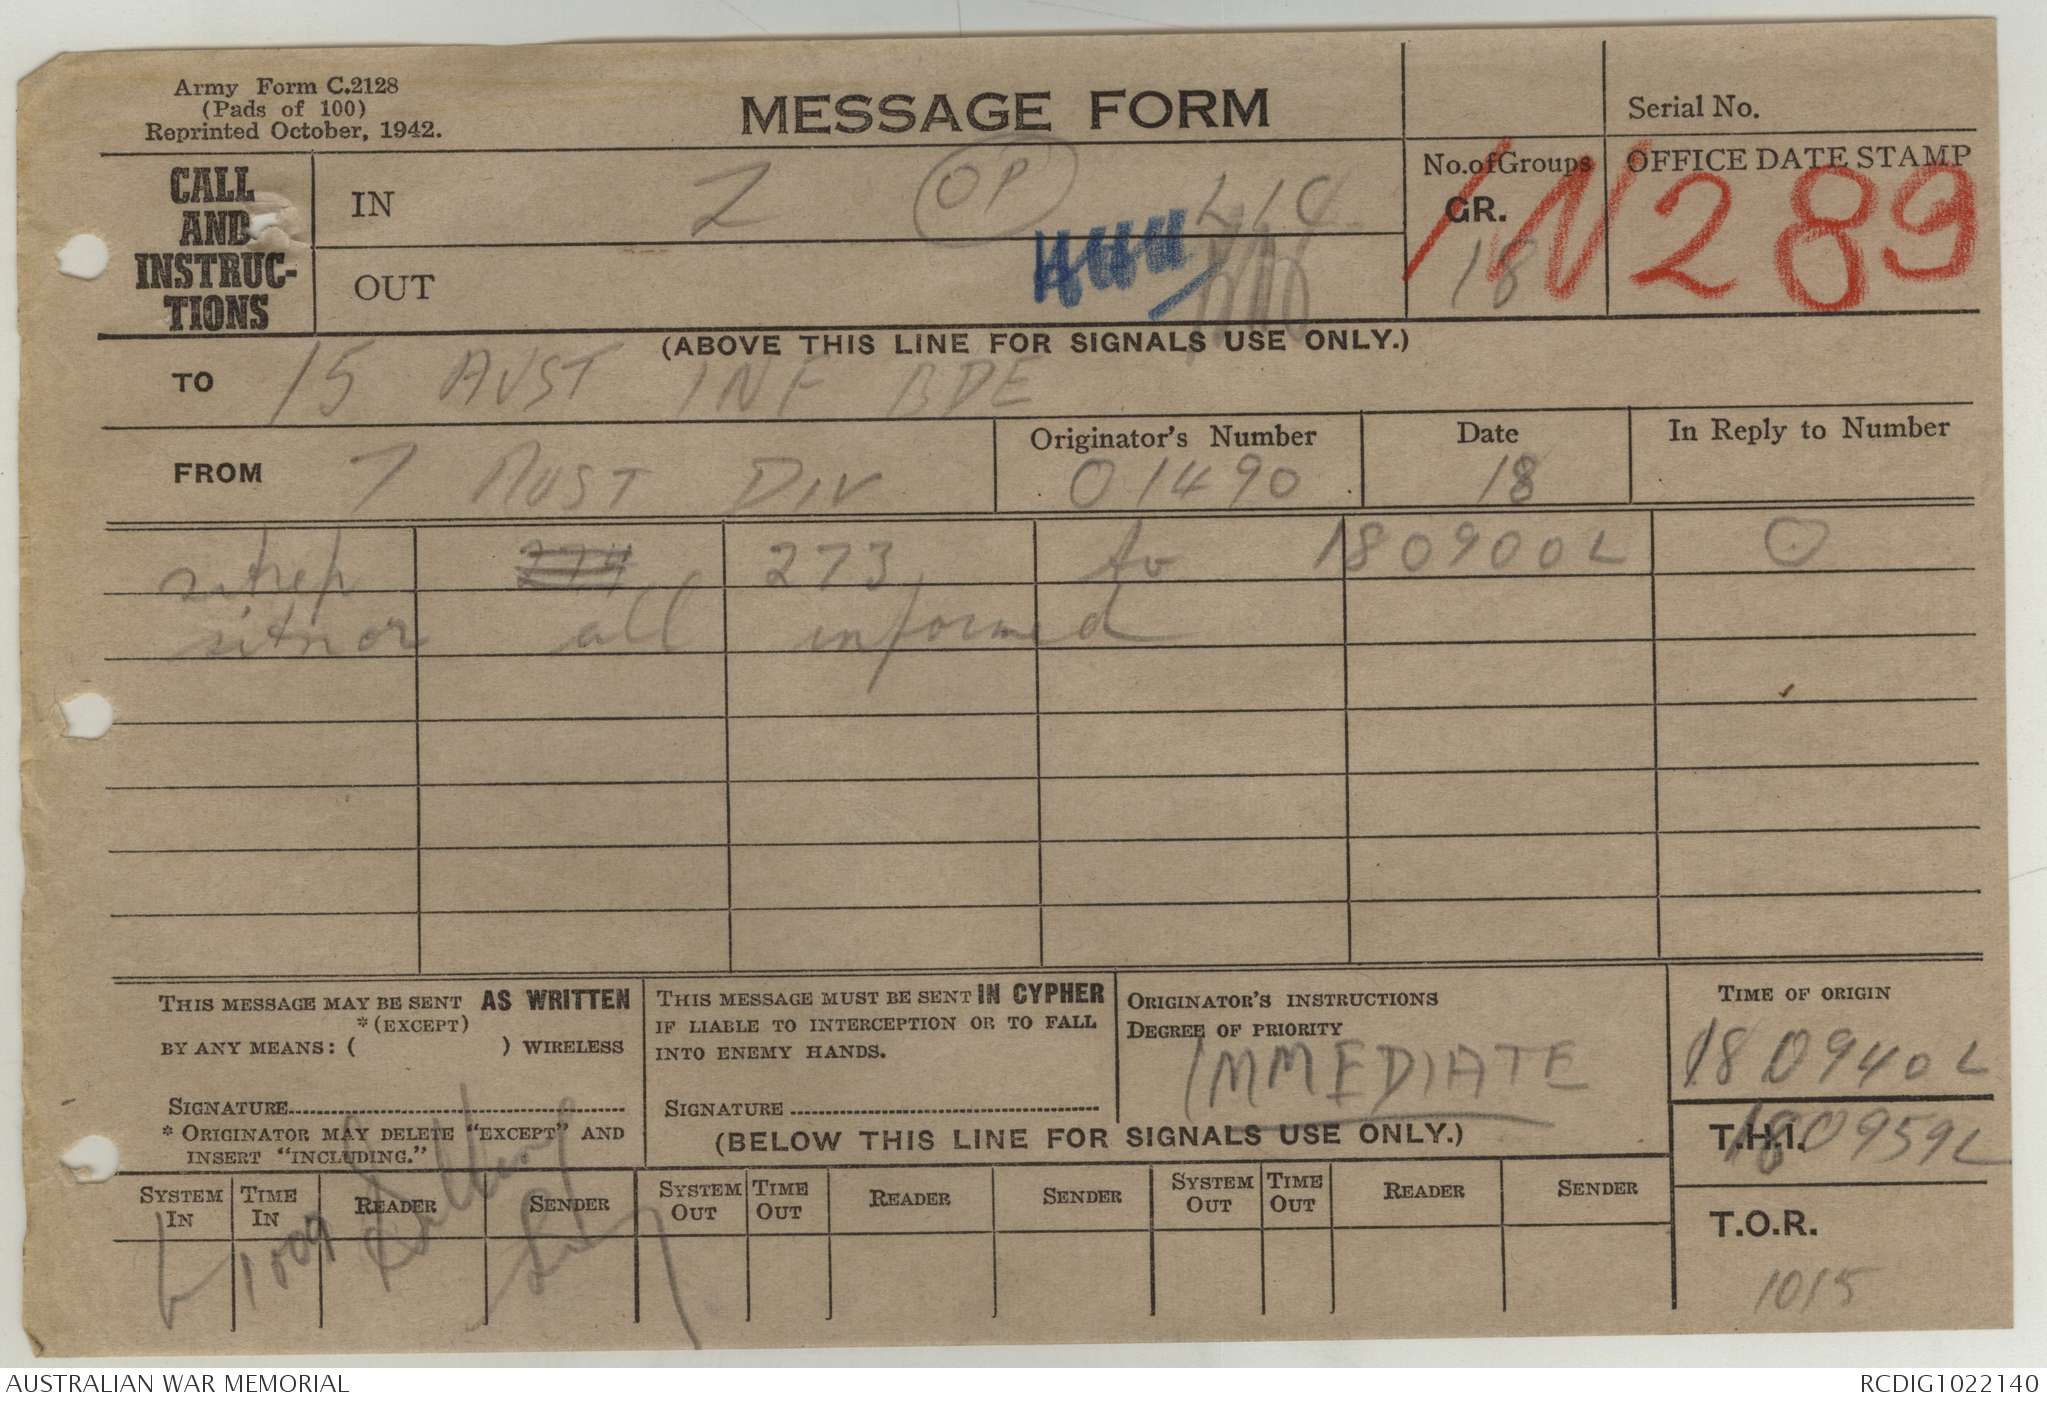 Army Form C.2128
(Pads of 100)
Reprinted October, 1942.
MESSAGE FORM
Serial No.
CALL AND INSTRUC-TIONS
IN Z OP
OUT
No. of Groups
GR. 18
OFFICE DATE STAMP
IN 289
(ABOVE THIS LINE FOR SIGNALS USE ONLY.)
TO 15 AUST INF BDE
FROM 7 AUST DIV
Originator's Number
01490
Date
18
In Reply to Number
sitrep 274 273 to 180900L O
sitnor all informed
THIS MESSAGE MAY BE SENT AS WRITTEN
*(EXCEPT)
BY ANY MEANS: ( ) WIRELESS
SIGNATURE
* ORIGINATOR MAY DELETE "EXCEPT" AND
INSERT "INCLUDING."
THIS MESSAGE MUST BE SENT IN CYPHER
IF LIABLE TO INTERCEPTION OR TO FALL
INTO ENEMY HANDS.
SIGNATURE
ORIGINATOR'S INSTRUCTIONS
DEGREE OF PRIORITY
IMMEDIATE
TIME OF ORIGIN
180940L
(BELOW THIS LINE FOR SIGNALS USE ONLY.)
T.H.I. 180959L
T.O.R.
1015
SYSTEM IN TIME IN READER SENDER SYSTEM OUT TIME OUT READER SENDER SYSTEM OUT TIME OUT READER SENDER
L 1009
AUSTRALIAN WAR MEMORIAL
RCDIG1022140